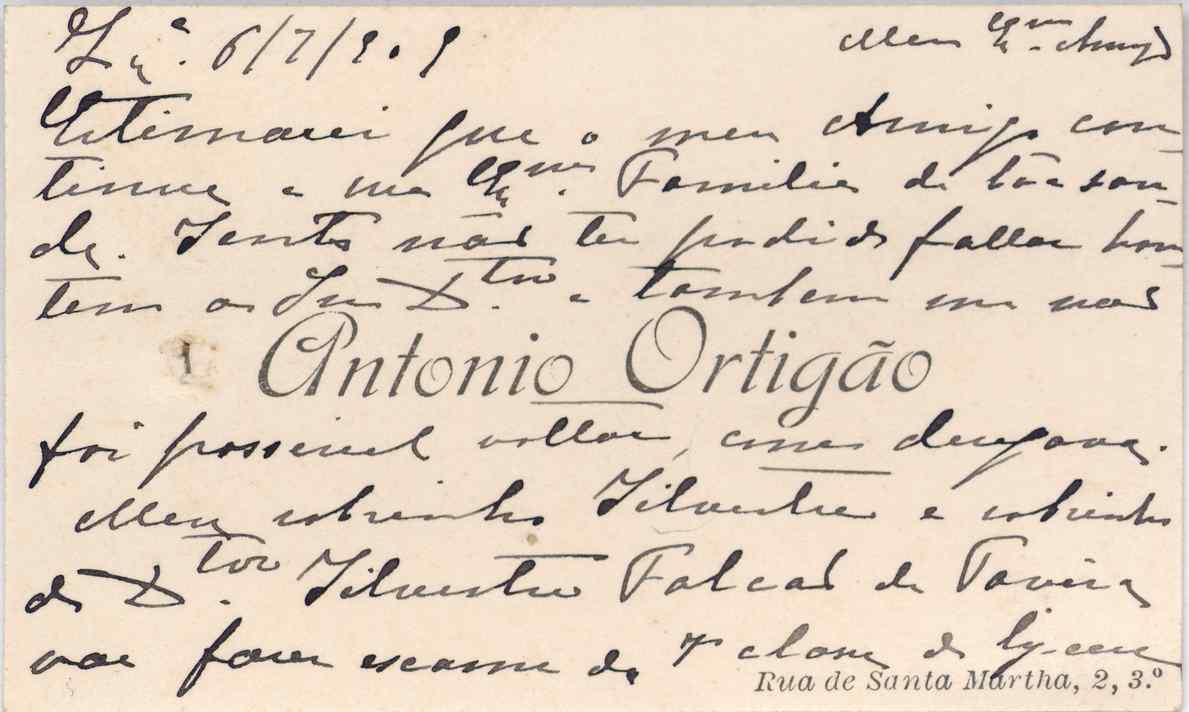 Lxª. 6/7/909 Meu Exmo. Amigo
Estimarei que o meu Amigo con-
tinue e sua Exma. Familia de bôa sau-
de. Sentí não ter podido fallar hon-
tem ao Snr Dtor. e tambem me não
Antonio Ortigão
foi possivel voltar, como desejava.
Meu sobrinho Silvestre e sobrinho
do Dtor. Silvestre Falcão de Tavira
vae fazer exame da 7ª classe do lyceu
Rua de Santa Martha, 2, 3.º